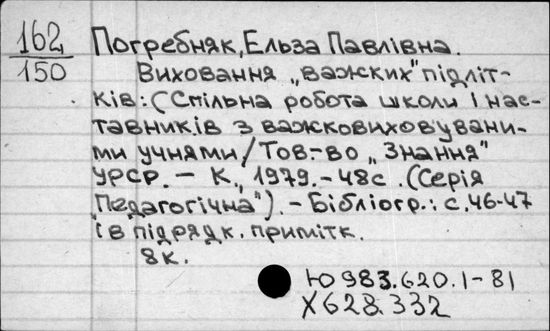 162
150
Погребняк, Ельза Павлівна.
Виховання „важких" підліт-
ків: (Спільна робота школи і нас-
тавників з важковиховувани-
ми учнями/Тов.-во „Знання"
УРСР. – К., 1979. – 48с. (Серія
„Педагогічна"). – Бібліогр.: с. 46-47
і в підрядк. примітк.
8к.
Ю983.620.1-81
Х628.332